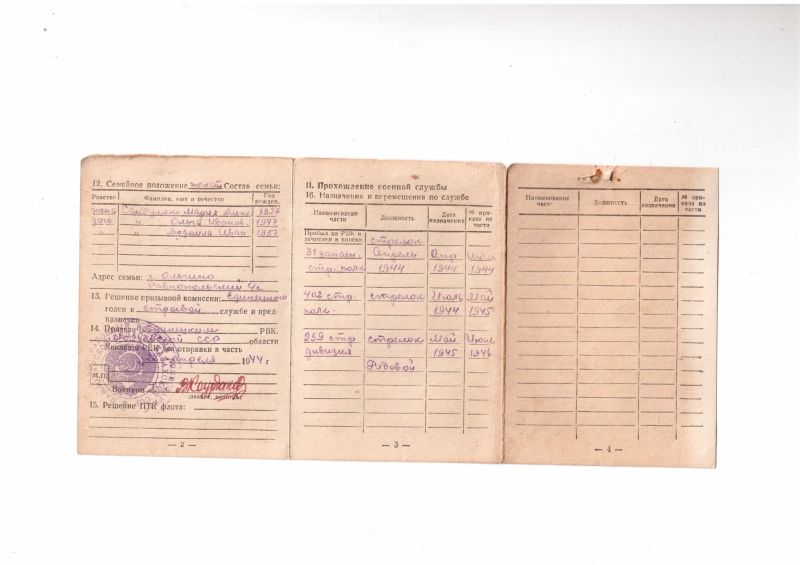 12. Семейное положение женат Состав семьи:
Родство Фамилия, имя и отчество Год рожден.
жена Мария 1927
дочь " Ольга Иванов. 1947
" " Людмила Иван 1957
Адрес семьи: с. Ольгино
13. Решение призывной комиссии:
годен к строевой службе и пред-
назначен
14. Призван РВК.
ССР области
и РВК для отправки в часть
апреля 1944 г
м.п.
Военком
15. Решение ПТК флота:
— 2 —
II. Прохождение военной службы
16. Назначения и перемещения по службе
Наименование части Должность Дата назначения № при-каза по части
Прибыл из РВК и зачислен в списки стрелок
31 запасн. Апрель Апр Июл
стр. полк 1944 1944 1944
402 стр. стрелок Июль Май
полк. 1944 1945
259 стр стрелок Май Июл
дивизия 1945 1946
Рядовой
— 3 —
Наименование части Должность Дата назначения № при-каза по части
— 4 —